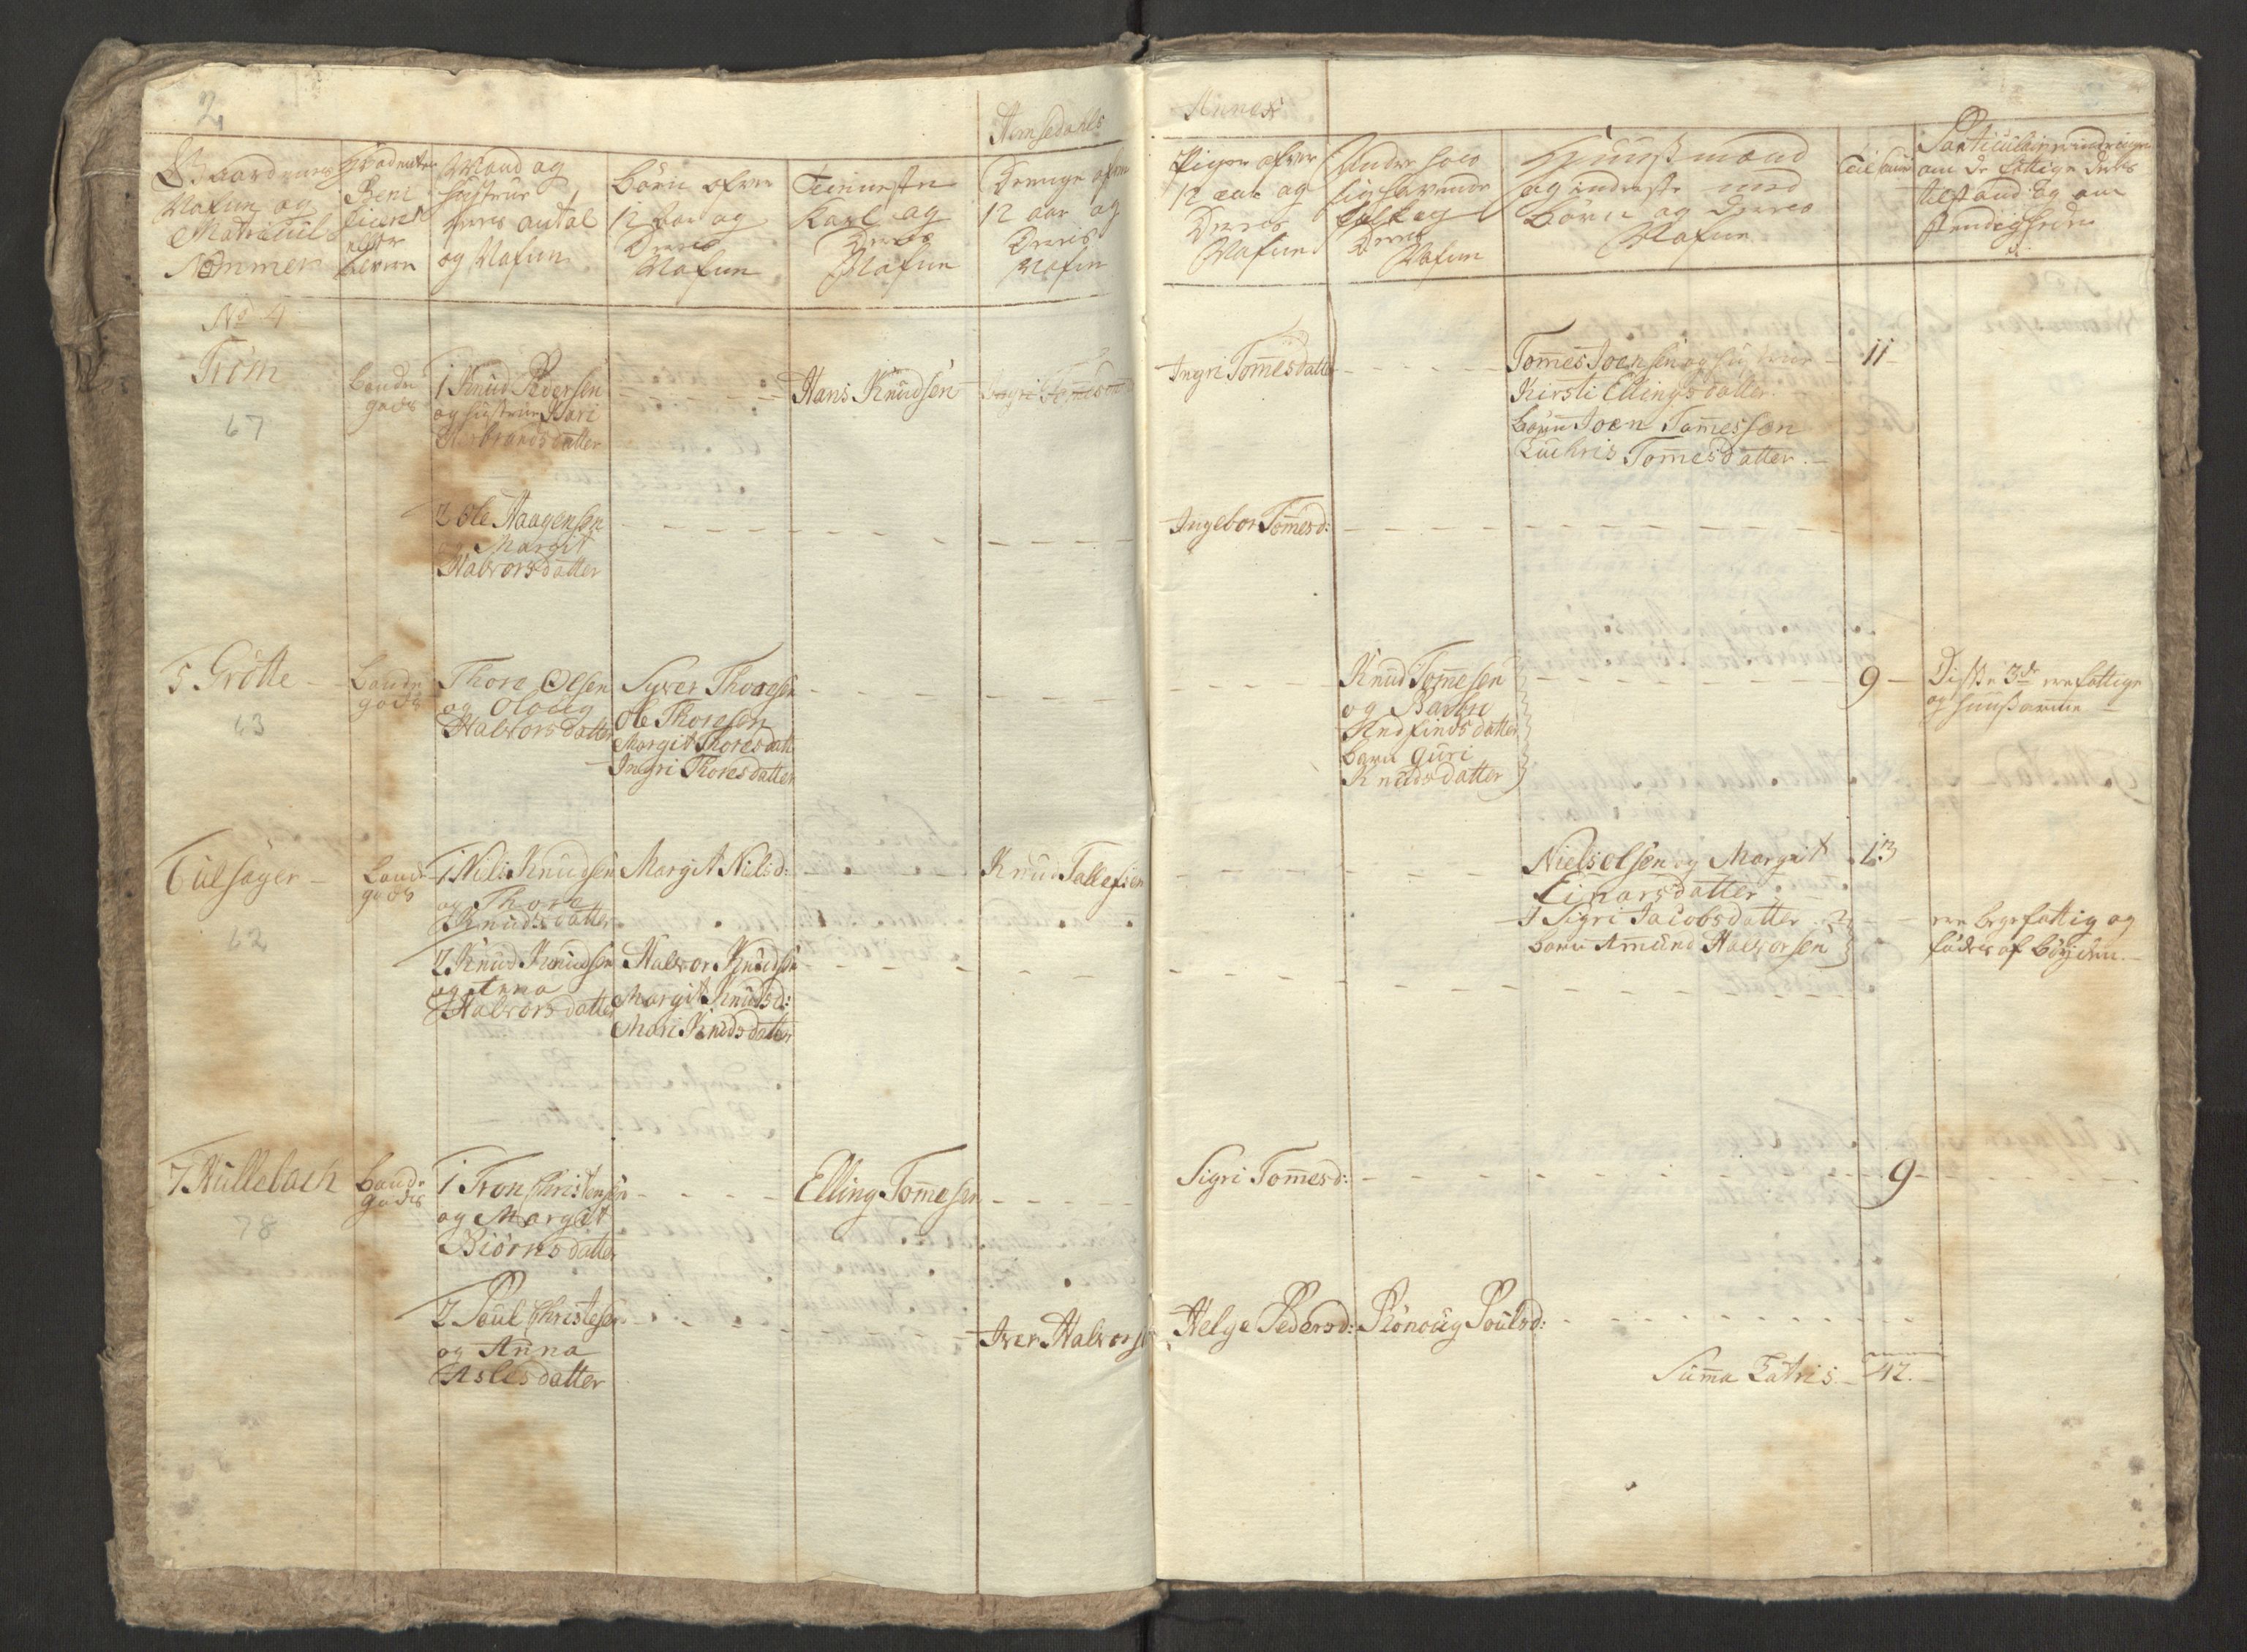 2
Hemsedahls
Annex
Gaardenes
Nafun og
Matricul
Nommer
Mand og
hustrue
deres antal
og Nafun
Börn ofver
12 Aar og
Deres
Nafun
Tieneste
Karl og
Deres
Nafun
Drenge ofver
12 aar og
Deres
Nafun
Piger ofver
12 aar og
Deres
Nafun
Under
Folk og
Deres
Nafun
Huusmænd
og inderste med
Börn og Deres
Nafun
om de fattige deres
tilstand og om
stendigheder
No 4
Tröm
67
Bonde
gods
1 Knud Pedersen
og hustrue Kari
Herbrandsdatter
Hans Knudsen
Ingri Tomesdatter
Tomes Joensen og hustrue
Kirsti Ellingsdatter
Börn Joen Tomessøn
Tomesdatter
11
2 Ole Haagensøn
og Margit
Halvorsdatter
Ingebor Tomesd:
5 Grötte
63
Bonde
gods
Thore Olsen
og Oloug
Halvorsdatter
Syver Thoresen
Ole Thoresen
Margit Thoresdatt
Ingri Thoresdatter
Knud Tomesen
og Barbro
Endfindsdatter
barn Guri
Knudsdatter
9
Disse 3de ere fattige
og huusarme
6 Ulsager
62
Bonde
gods
1 Nils Knudsen
og Thore
Knudsdatter
Margit Nielsd:
Knud Tallefsen
Niels Olsen og Margrit
Einarsdatter
13
1 Sigri Jacobsdatter
barn Amund Halvorsen
ere begge fattig og
födes af böyden
2 Knud Knudsen
og Anna
Halvorsdatter
Halvor Knudsen
Margit Knudsd:
Mari Knudsdatter
7 Hullebach
78
Bonde
gods
1 Tron Christensen
og Margit
Biörnsdatter
Elling Tomesen
Sigri Tomesd:
9
2 Poul Christesen
og Anna
Aslesdatter
Iver Halvorsen
Helge Pedersd:
Rönoug Poulsd:
Suma Latris
42